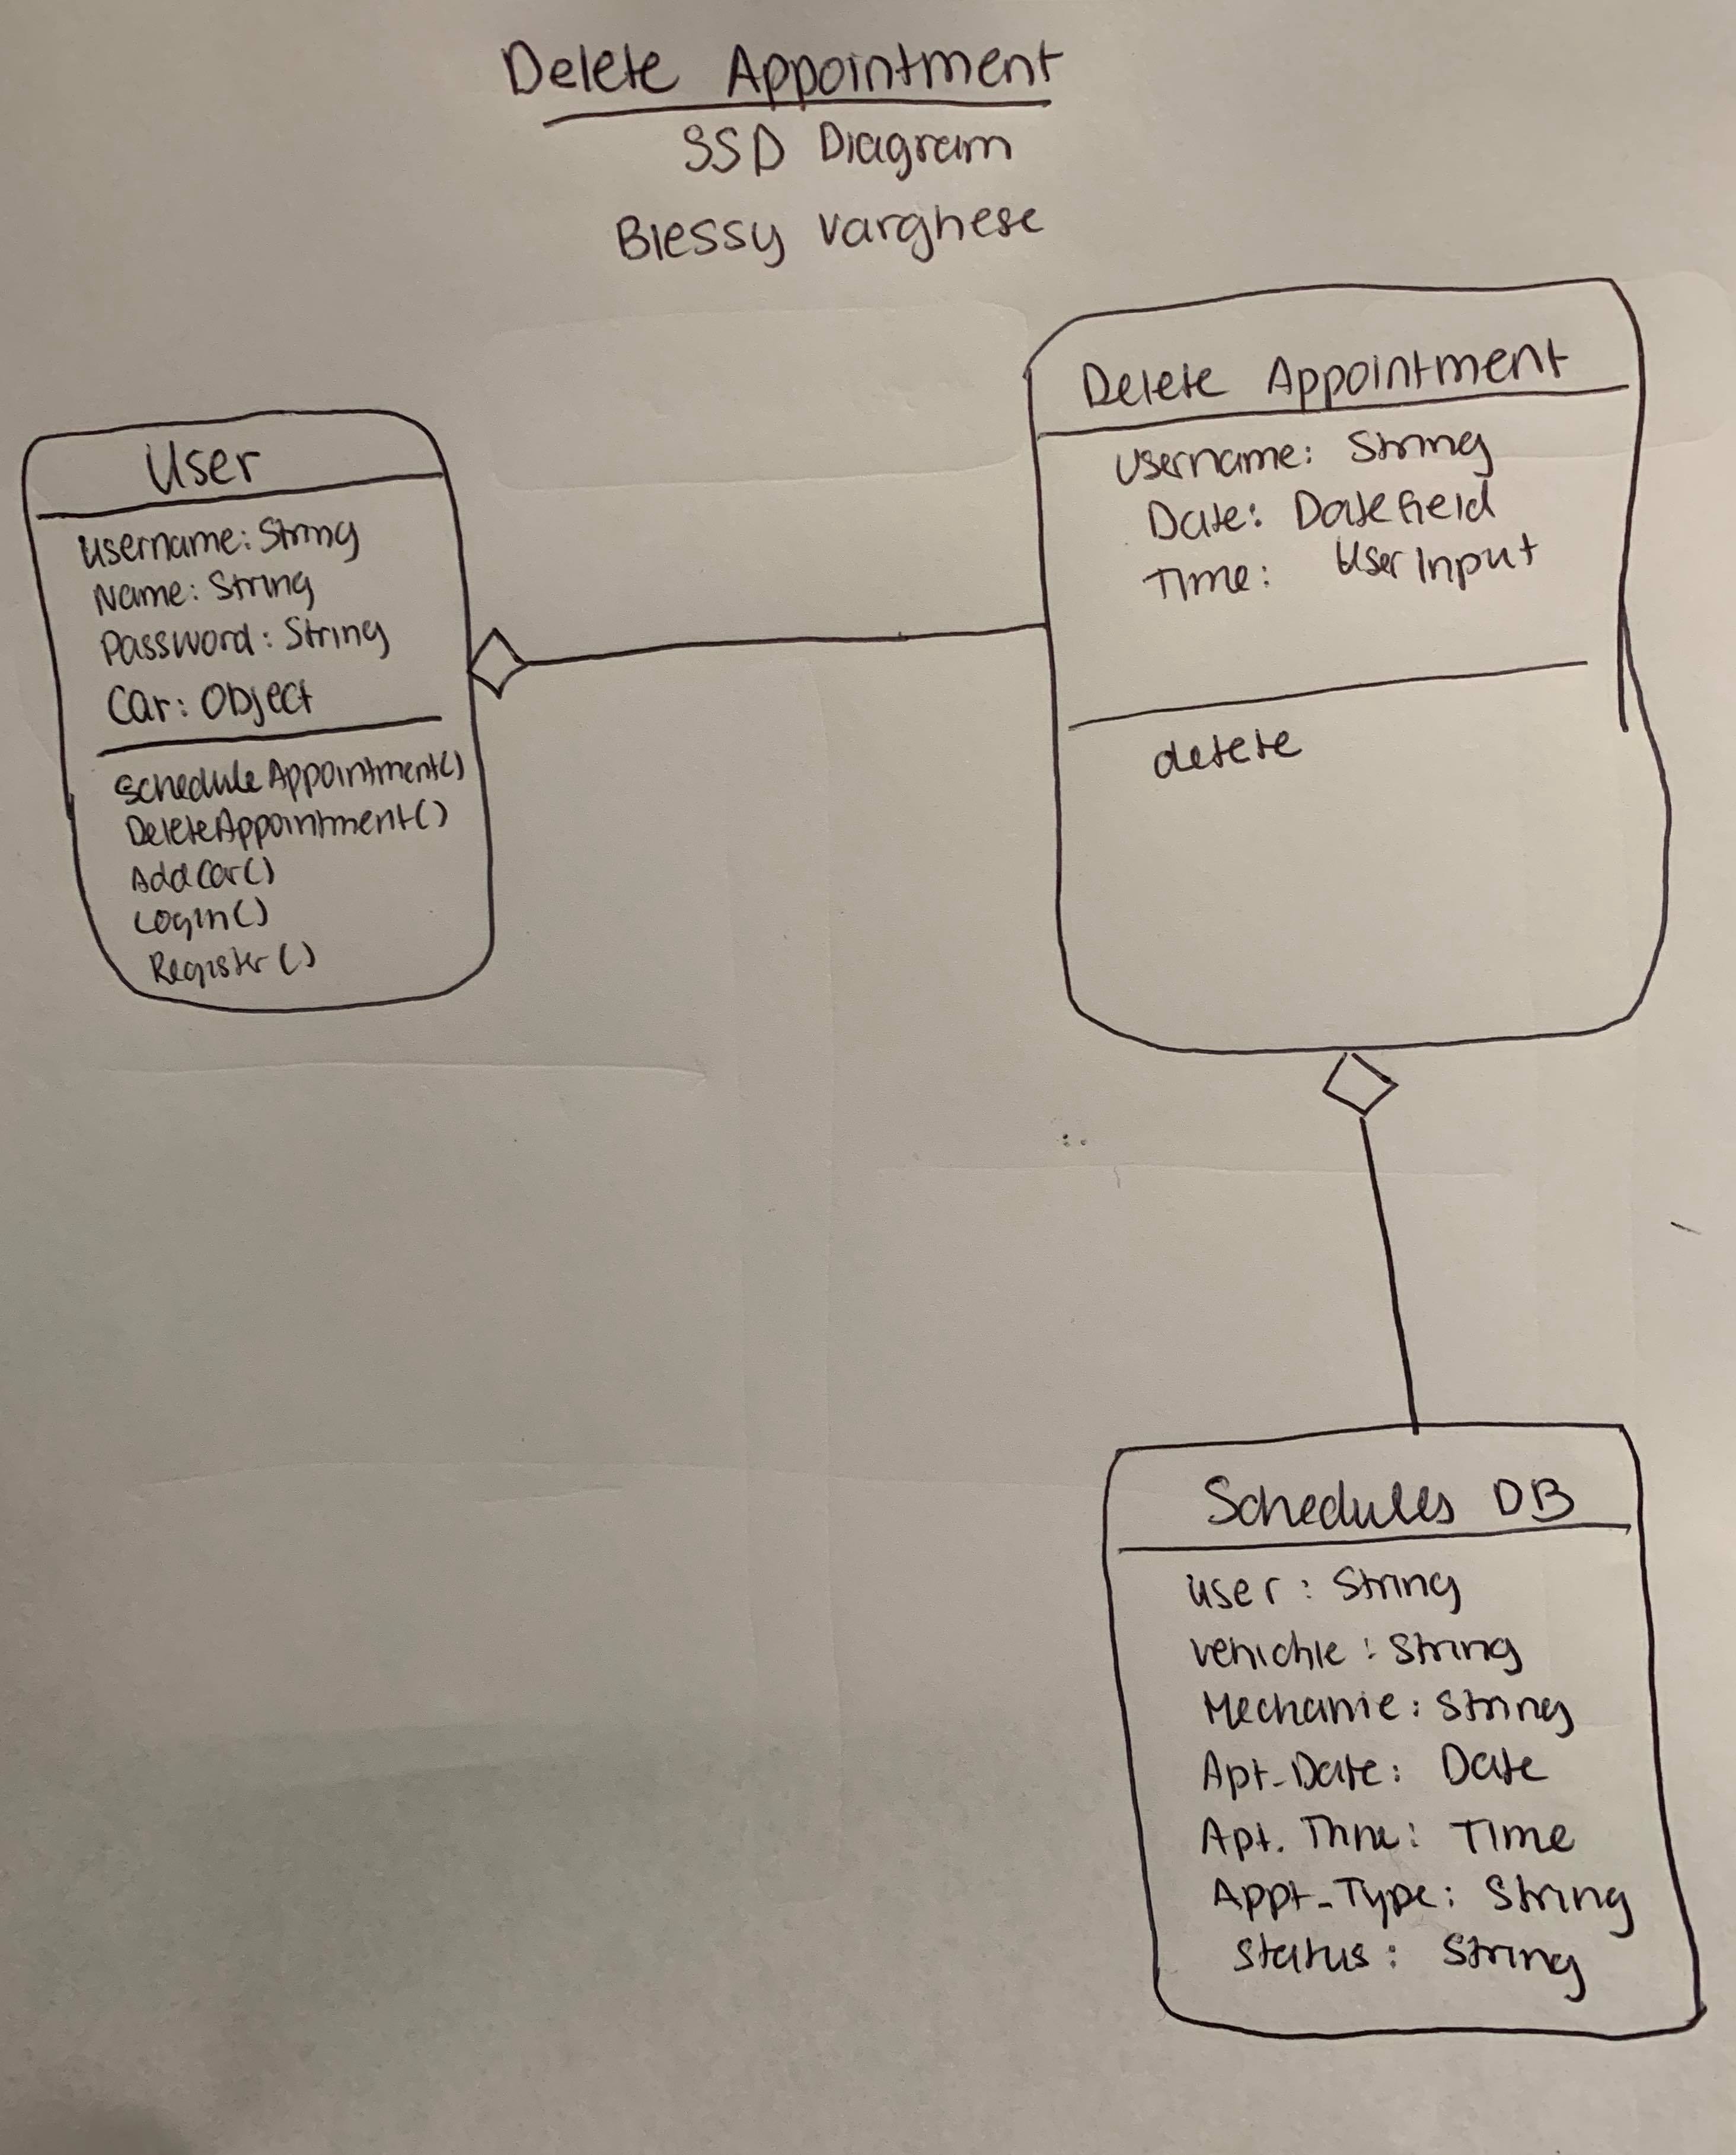 Delete Appointment
SSD Diagram
Blessy Varghese
User
Username: String
Name: String
Password: String
Car: Object
ScheduleAppointment()
DeleteAppointment()
AddCar()
Login()
Register()
Delete Appointment
Username: String
Date: Datefield
Time: UserInput
delete
Schedules DB
User: String
Vehichle: String
Mechanic: String
Apt_Date: Date
Apt. Time: Time
Appt_Type: String
Status: String